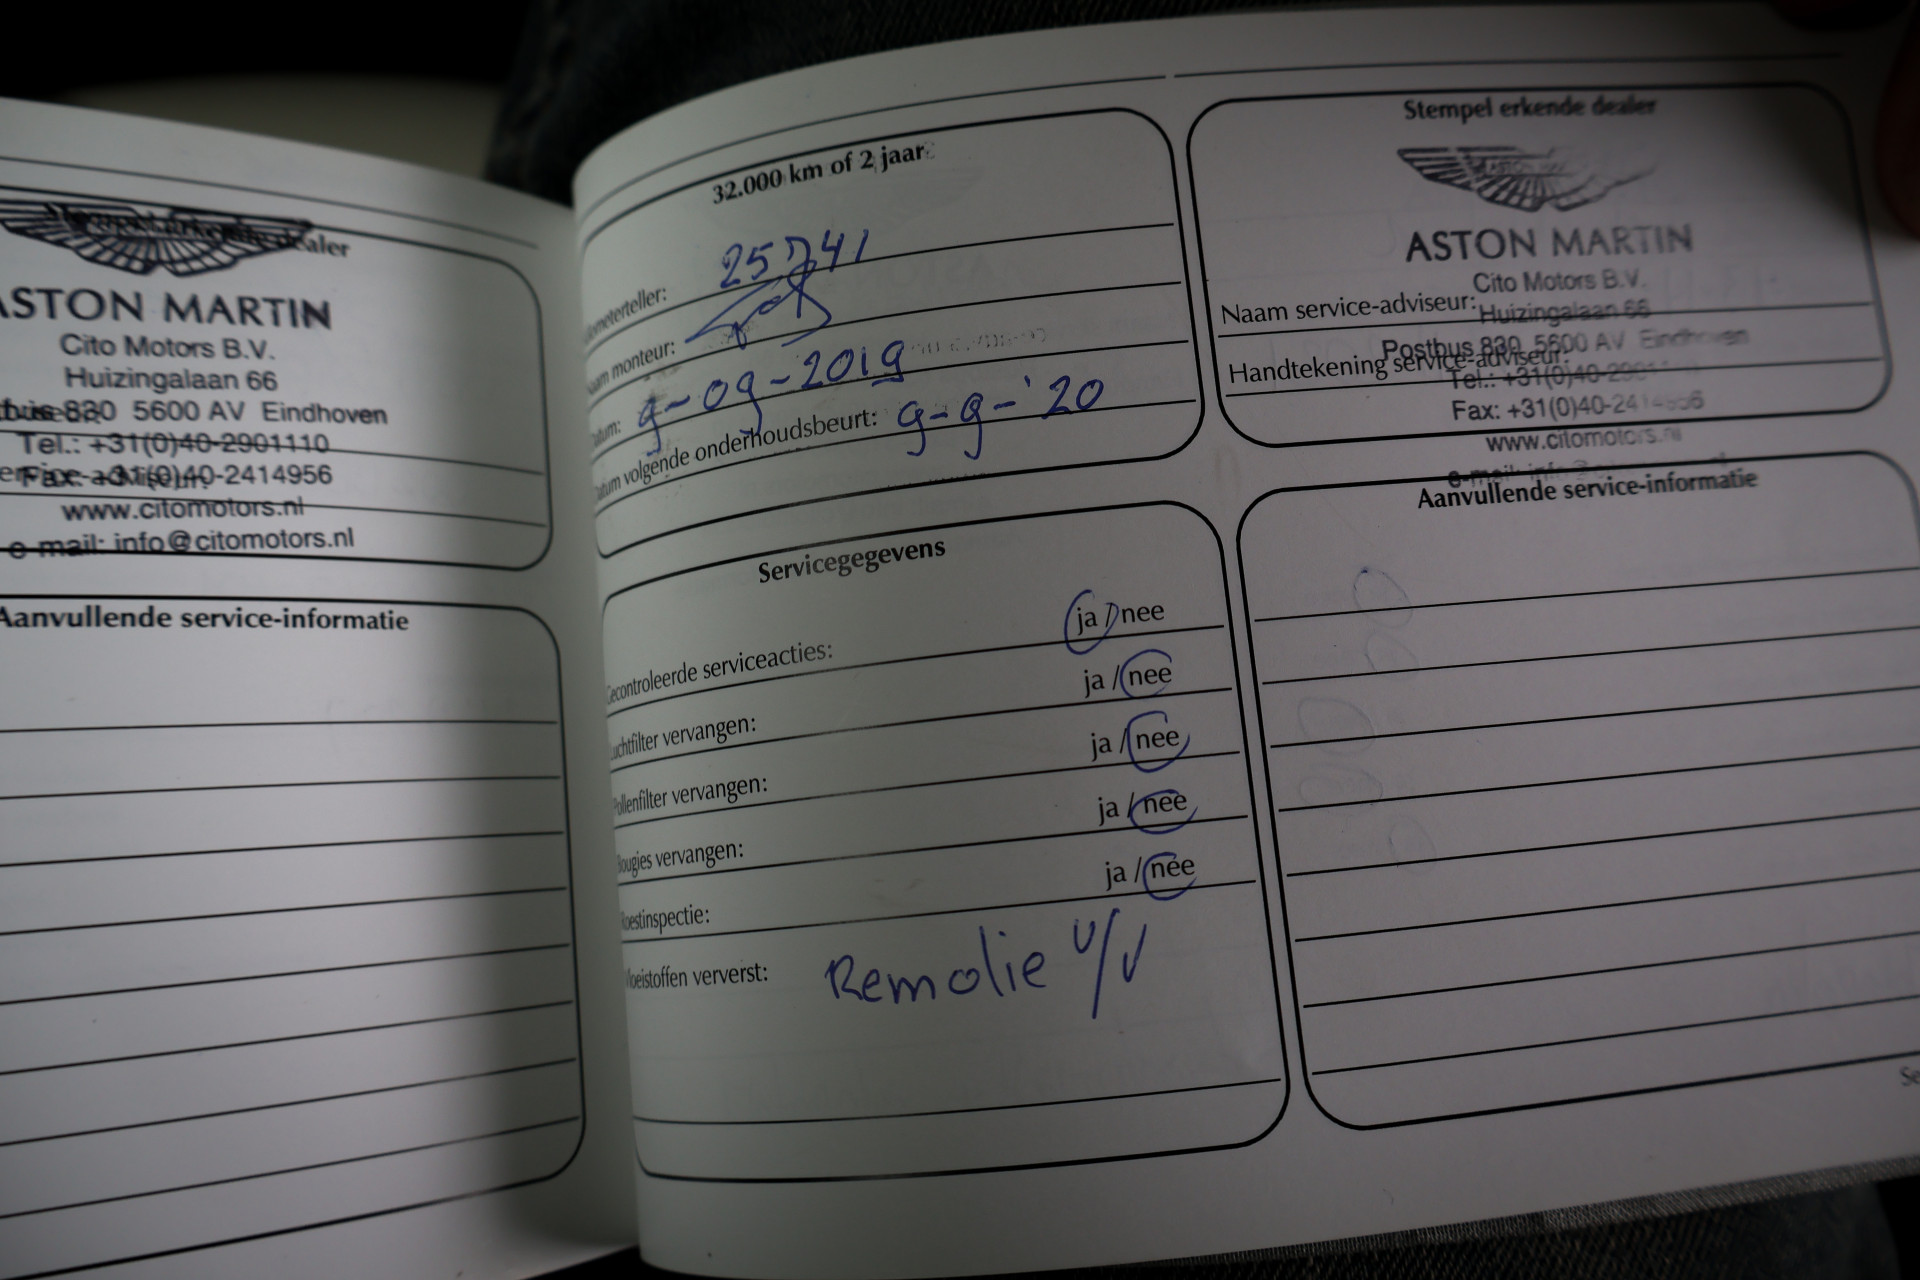 dealer
ASTON MARTIN
Cito Motors B.V.
Huizingalaan 66
5600 AV Eindhoven
Tel.: +31(0)40-2901110
Fax: +31(0)40-2414956
www.citomotors.nl
e-mail: info@citomotors.nl
Aanvullende service-informatie
32.000 km of 2 jaar
lometerteller: 25741
am monteur:
atum: 9-09-2019
atum volgende onderhoudsbeurt: 9-9-'20
Stempel erkende dealer
ASTON MARTIN
Cito Motors B.V.
Naam service-adviseur:
Huizingalaan 66
Postbus 830 5600 AV Eindhoven
Handtekening service-adviseur:
Tel.: +31(0)40-2901
Fax: +31(0)40-2414956
www.citomotors.nl
e-mail:
Servicegegevens
econtroleerde serviceacties: ja / nee
uchtfilter vervangen: ja / nee
ollenfilter vervangen: ja / nee
Bougies vervangen: ja / nee
oestinspectie: ja / nee
loeistoffen ververst: Remolie v/v
Aanvullende service-informatie
Se